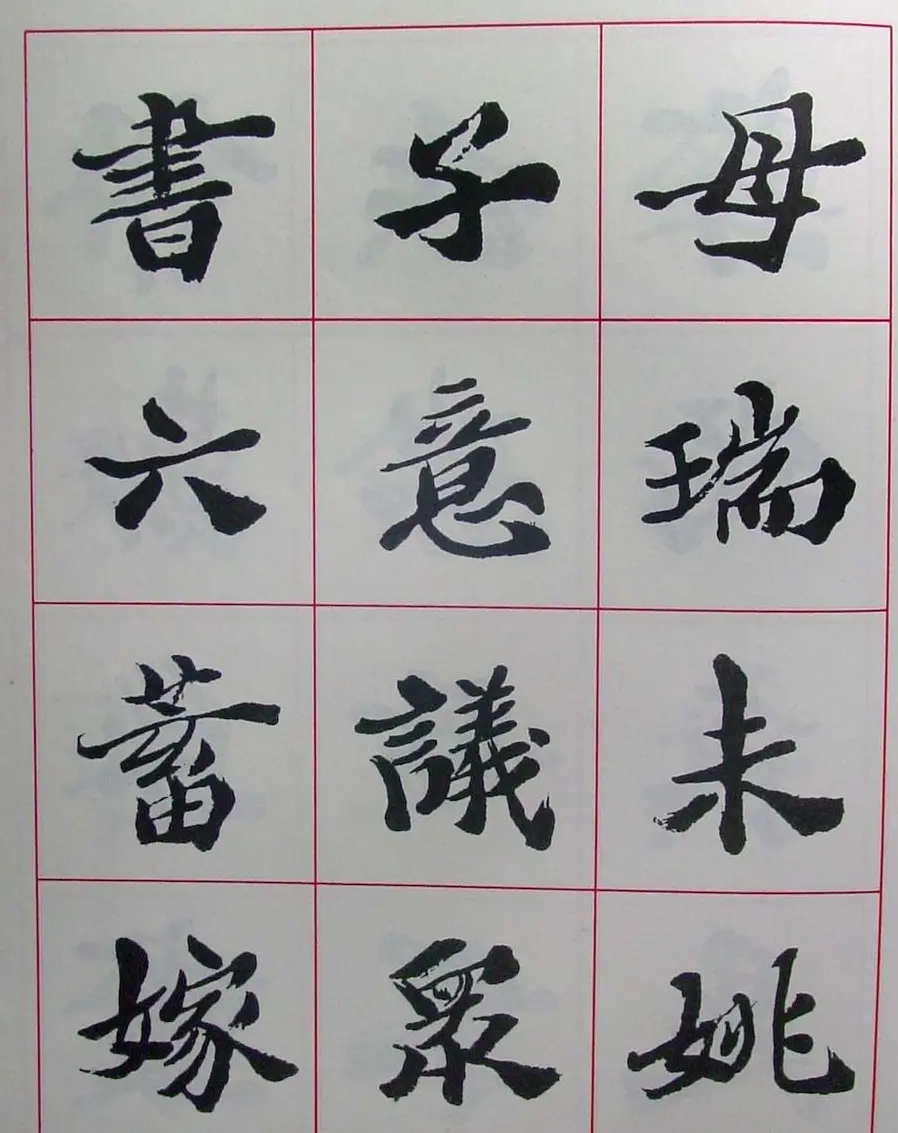 母瑞未姚
子意議眾
書六蓄嫁